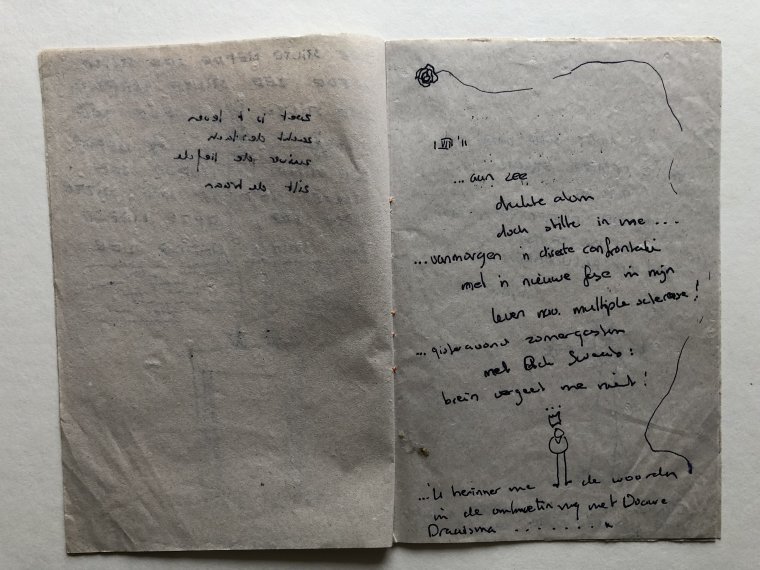 zoet is 't leven
zuiver de liefde
zilt de traan
...aan zee
drukte alom
doch stilte in me ...
...vanmorgen 'n directe confrontatie
met 'n nieuwe fase in mijn
leven multiple sclerose!
... gisteravond zomergasten
met Dick Swaab:
brein vergeet me niet!
...'k herinner me de woorden
in de ontmoeting met Douwe
Draaisma ........